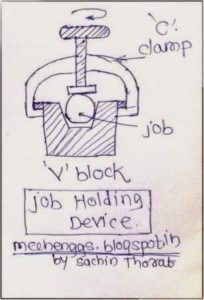 'C'
clamp
job
'V' block
job Holding
Device.
mechenggs.blogspot.in
by sachin Thorat